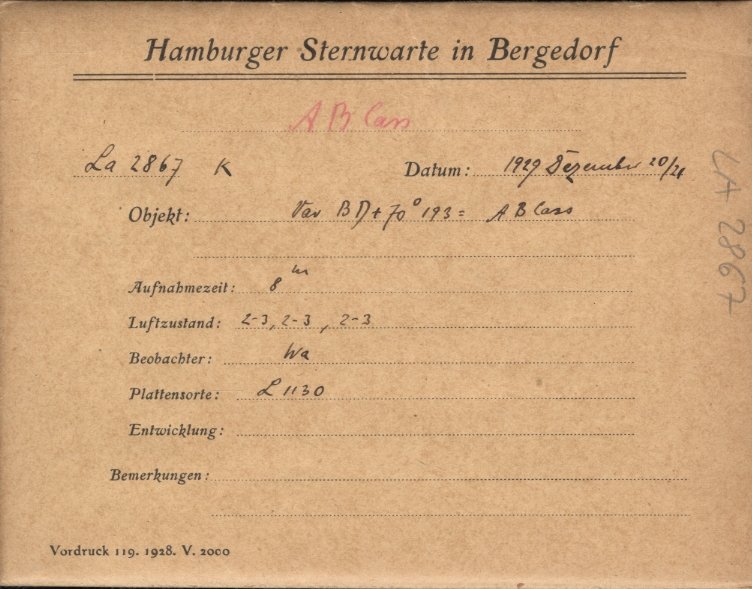 Hamburger Sternwarte in Bergedorf
A B Cass
La 2867 K Datum: 1929 Dezember 20/21
Objekt: Var BD + 70° 193 = A B Cass
Aufnahmezeit: 8 m
Luftzustand: 2-3, 2-3, 2-3
Beobachter: Wa
Plattensorte: L 1130
Entwicklung:
Bemerkungen:
Vordruck 119. 1928. V. 2000
LA 2867